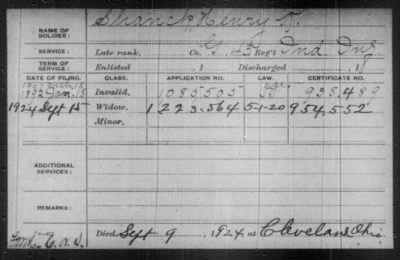 NAME OF SOLDIER: Shanck, Henry
SERVICE: Late rank, Co. G, 43 Reg't Ind. Inf.
TERM OF SERVICE: Enlisted 1 Discharged 18
DATE OF FILING. CLASS. APPLICATION NO. LAW. CERTIFICATE NO.
1892 Jan. Invalid, 1085505 935,489
1924 Sept 15 Widow, 1223564 5-1-20 954,552
Minor,
ADDITIONAL SERVICES:
REMARKS:
Died Sept 9 1924 at Cleveland Ohio